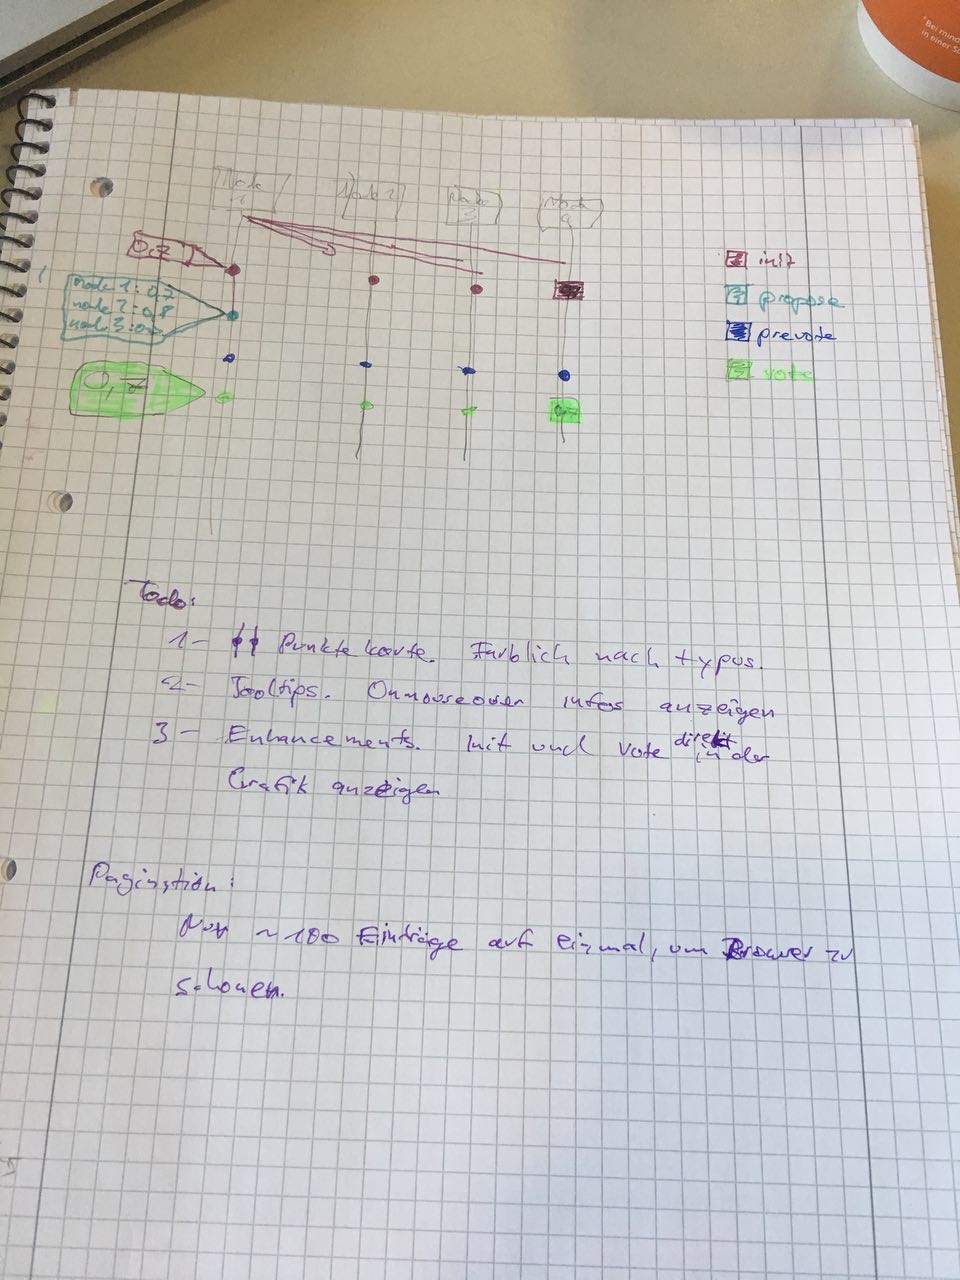 *Bei mind
in einer S
Node
1
Node 2
Node
3
Node
4
0,7
init
node 1: 0,7
node 2: 0,8
node 3: 0,
propose
prevote
0,7
0,7
vote
Todo:
1- Punktekarte. Farblich nach typus.
2- Tooltips. Onmouseover infos anzeigen
3- Enhancements. Init und Vote direkt in der
Grafik anzeigen
Pagination:
Nur ~100 Einträge auf einmal, um Browser zu
schonen.